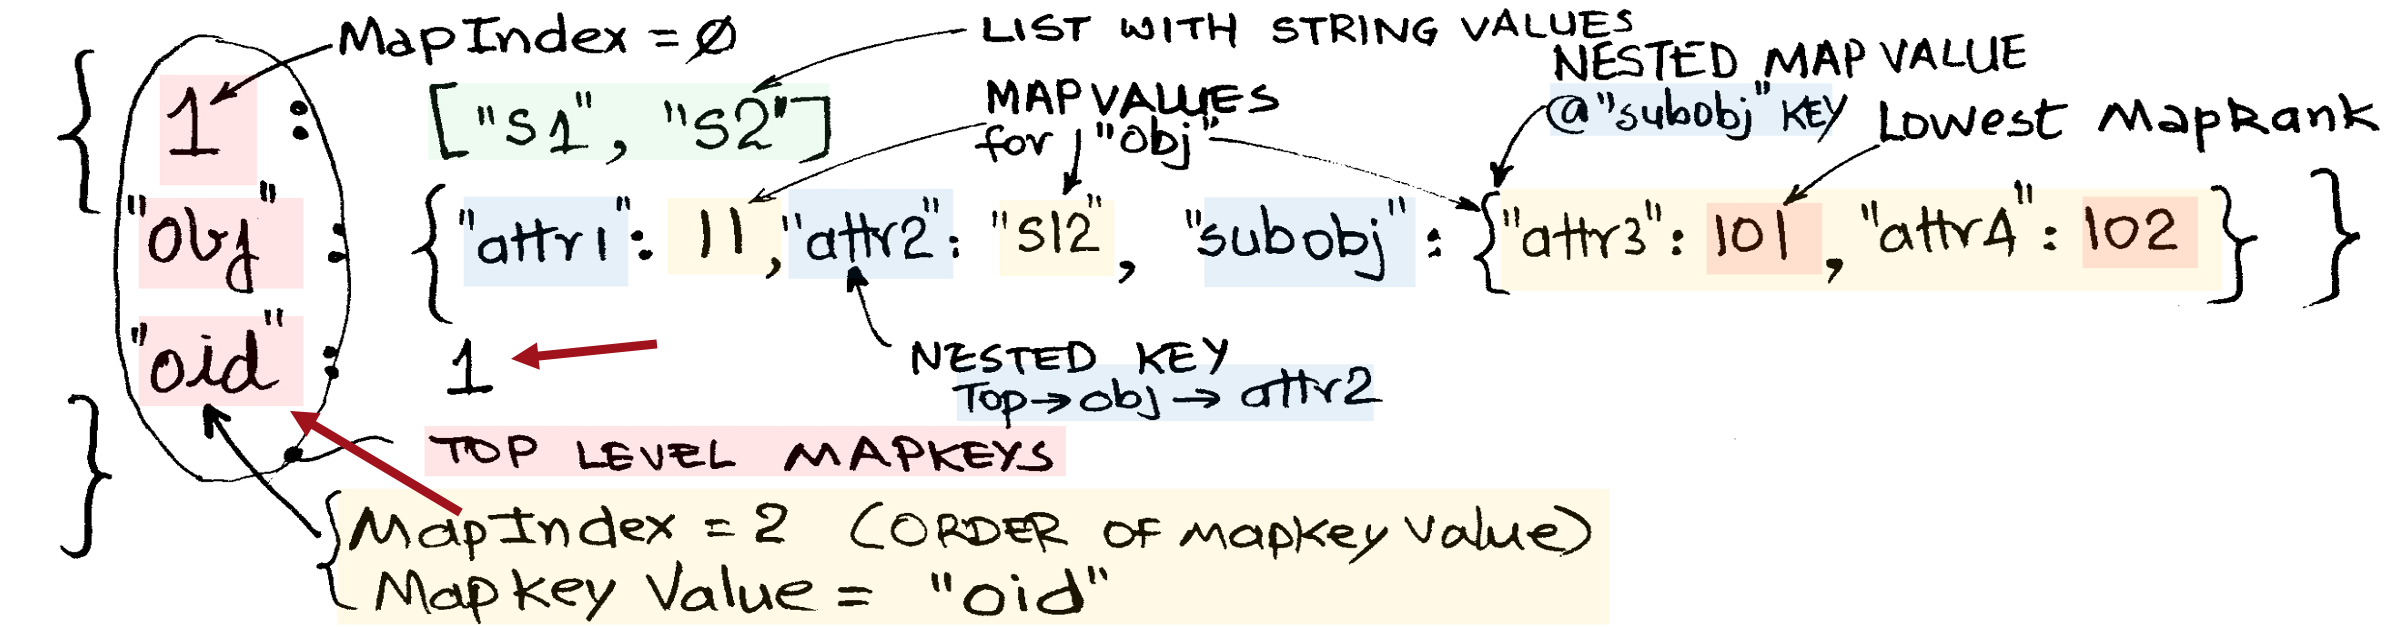 MapIndex = Ø
LIST WITH STRING VALUES
NESTED MAP VALUE
@"subobj" KEY
MAP VALUES
for "obj"
Lowest MapRank
{ 1 : ["S1", "S2"]
"obj" : {"attr1": 11, "attr2": "S12", "subobj": {"attr3": 101, "attr4": 102}}
"oid" : 1
}
NESTED KEY
Top→obj→attr2
TOP LEVEL MAPKEYS
MapIndex = 2 (ORDER OF mapkey value)
Mapkey Value = "oid"